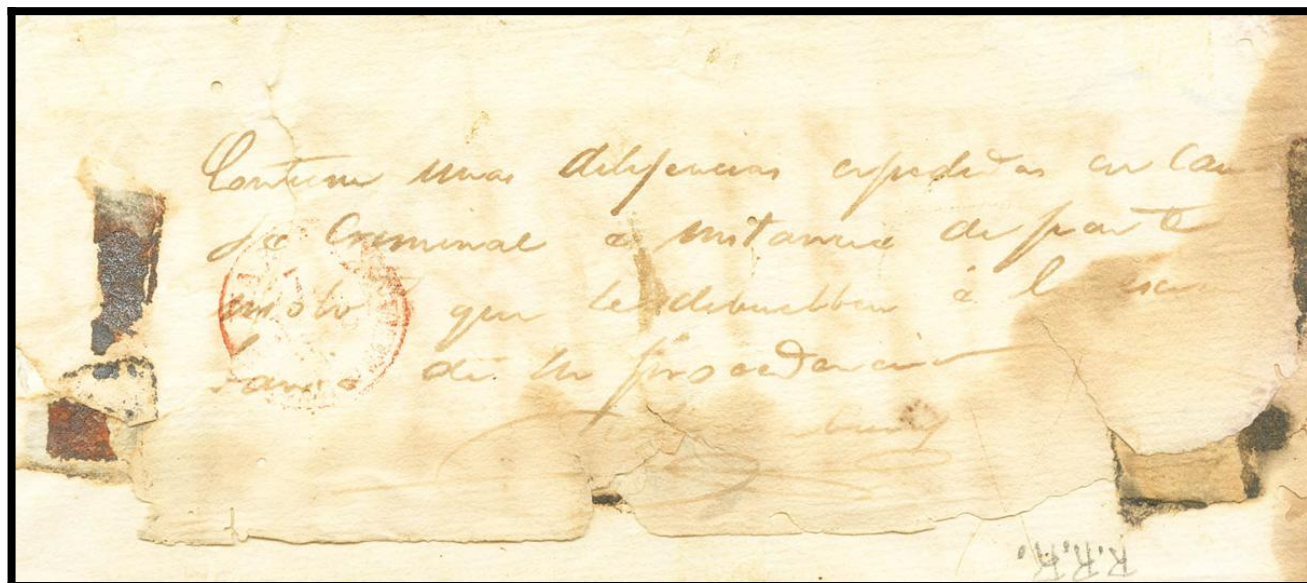 Contiene unas diligencias expedidas en Cau
sa Criminal a instancia de parte
que se debuelben á la escri
bania de su prosedencia
R.R.R.